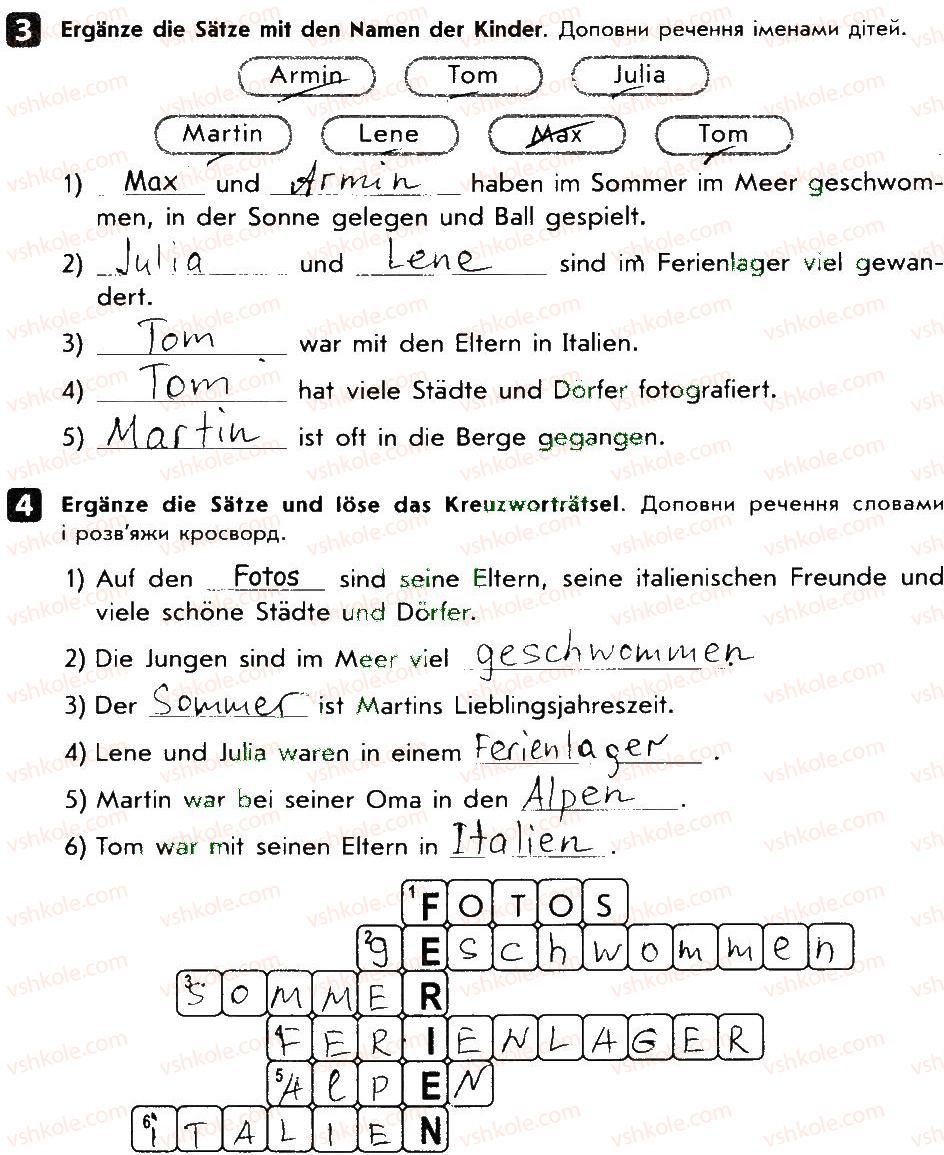 3 Ergänze die Sätze mit den Namen der Kinder. Доповни речення іменами дітей.
Armin Tom Julia
Martin Lene Max Tom
1) Max und Armin haben im Sommer im Meer geschwom-
men, in der Sonne gelegen und Ball gespielt.
2) Julia und Lene sind im Ferienlager viel gewan-
dert.
3) Tom war mit den Eltern in Italien.
4) Tom hat viele Städte und Dörfer fotografiert.
5) Martin ist oft in die Berge gegangen.
4 Ergänze die Sätze und löse das Kreuzworträtsel. Доповни речення словами
і розв'яжи кросворд.
1) Auf den Fotos sind seine Eltern, seine italienischen Freunde und
viele schöne Städte und Dörfer.
2) Die Jungen sind im Meer viel geschwommen.
3) Der Sommer ist Martins Lieblingsjahreszeit.
4) Lene und Julia waren in einem Ferienlager.
5) Martin war bei seiner Oma in den Alpen.
6) Tom war mit seinen Eltern in Italien.
1 FOTOS
2 gEschwommen
3 SOMMER
4 FERIENLAGER
5 AlpEN
6 ITALIEN
vshkole.com